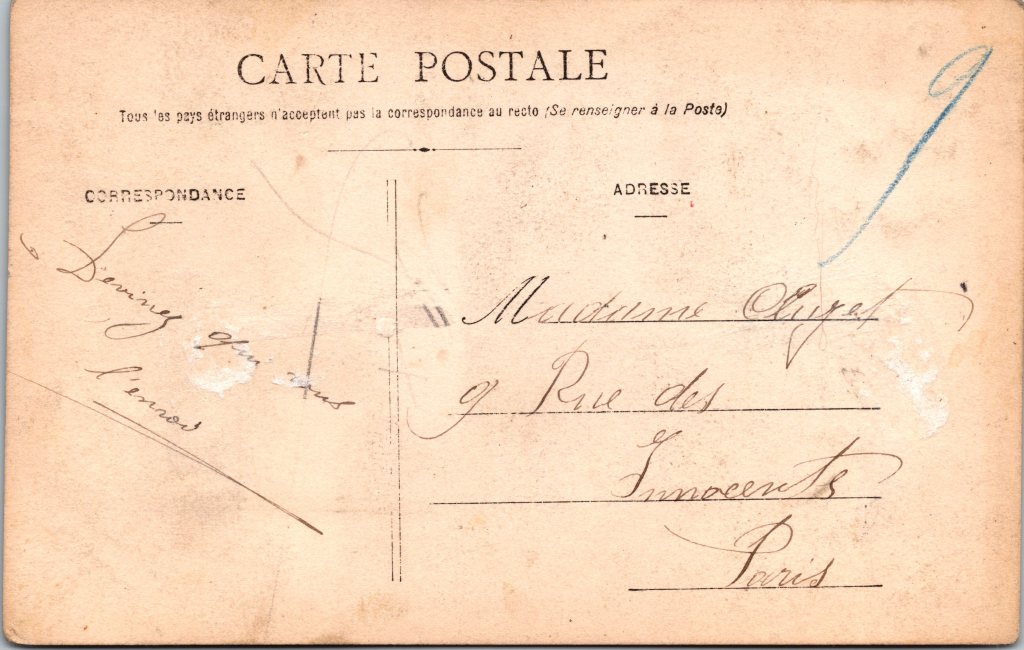 CARTE POSTALE
Tous les pays étrangers n'acceptent pas la correspondance au recto (Se renseigner à la Poste)
CORRESPONDANCE
ADRESSE
9
Devinez
qui vous
l'envoi
Madame
9 Rue des
Innocents
Paris